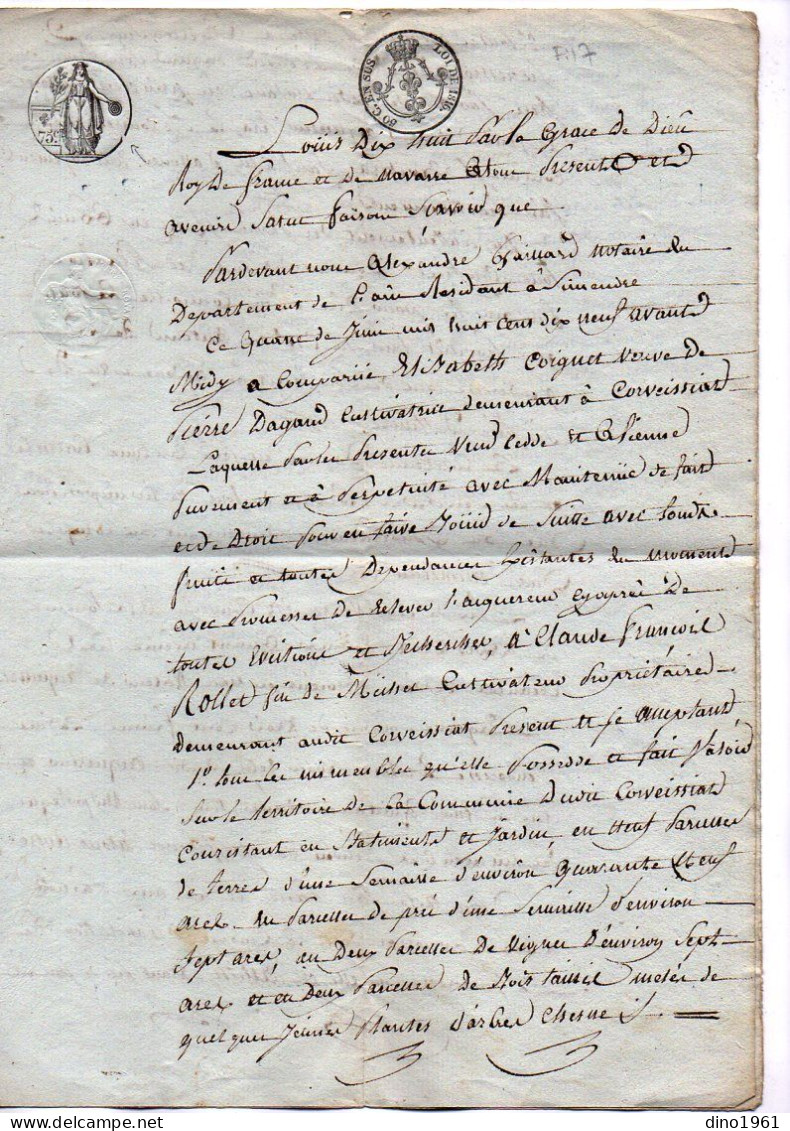 50 C. EN SUS LOI DE 1816
75 c
Louis Dix huit par la Grace de Dieu
Roy de france et de navarre A tous Presents et
avenir Salut faisons Scavoir que
Pardevant nous Alexandre Gaillard notaire du
Departement de l'ain Residant à Simandre
ce quatre de Juin mil huit cent dix neuf avant
Midy a Compariie Elisabeth Coiquet veuve de
Pierre Dagand Cultivatrice demeurant à Corveissiat
Laquelle par les Presentes Vend Cedde et Alienne
Purement et à Perpetuité avec Maintenüe de fait
et de Droit Pour en faire Joüir de Suitte avec fonds
fruits et toutes Dependances Existantes du moment
avec Promesse de relever l'aquereur Exprès de
toutes Evitions et Recherches, à Claude François
Rollet fils de Cultivateur Propriétaire
demeurant audit Corveissiat Present et se aceptant
1º. tous les immeubles qu'elle Possede et fait Valoir
Sur le territoire de la Commune dudit Corveissiat
Consistant en Batiments et Jardin, en neuf Parcelles
de terres d'une Semaille d'environ quarante Neuf
ares, en Parcelles de pré d'une d'environ
Sept ares, en Deux Parcelles De Vignes D'environ Sept
ares et en Deux Parcelles de Bois taillis melés de
quelques Jeunes Plantes d'arbres Chesne
dino1961